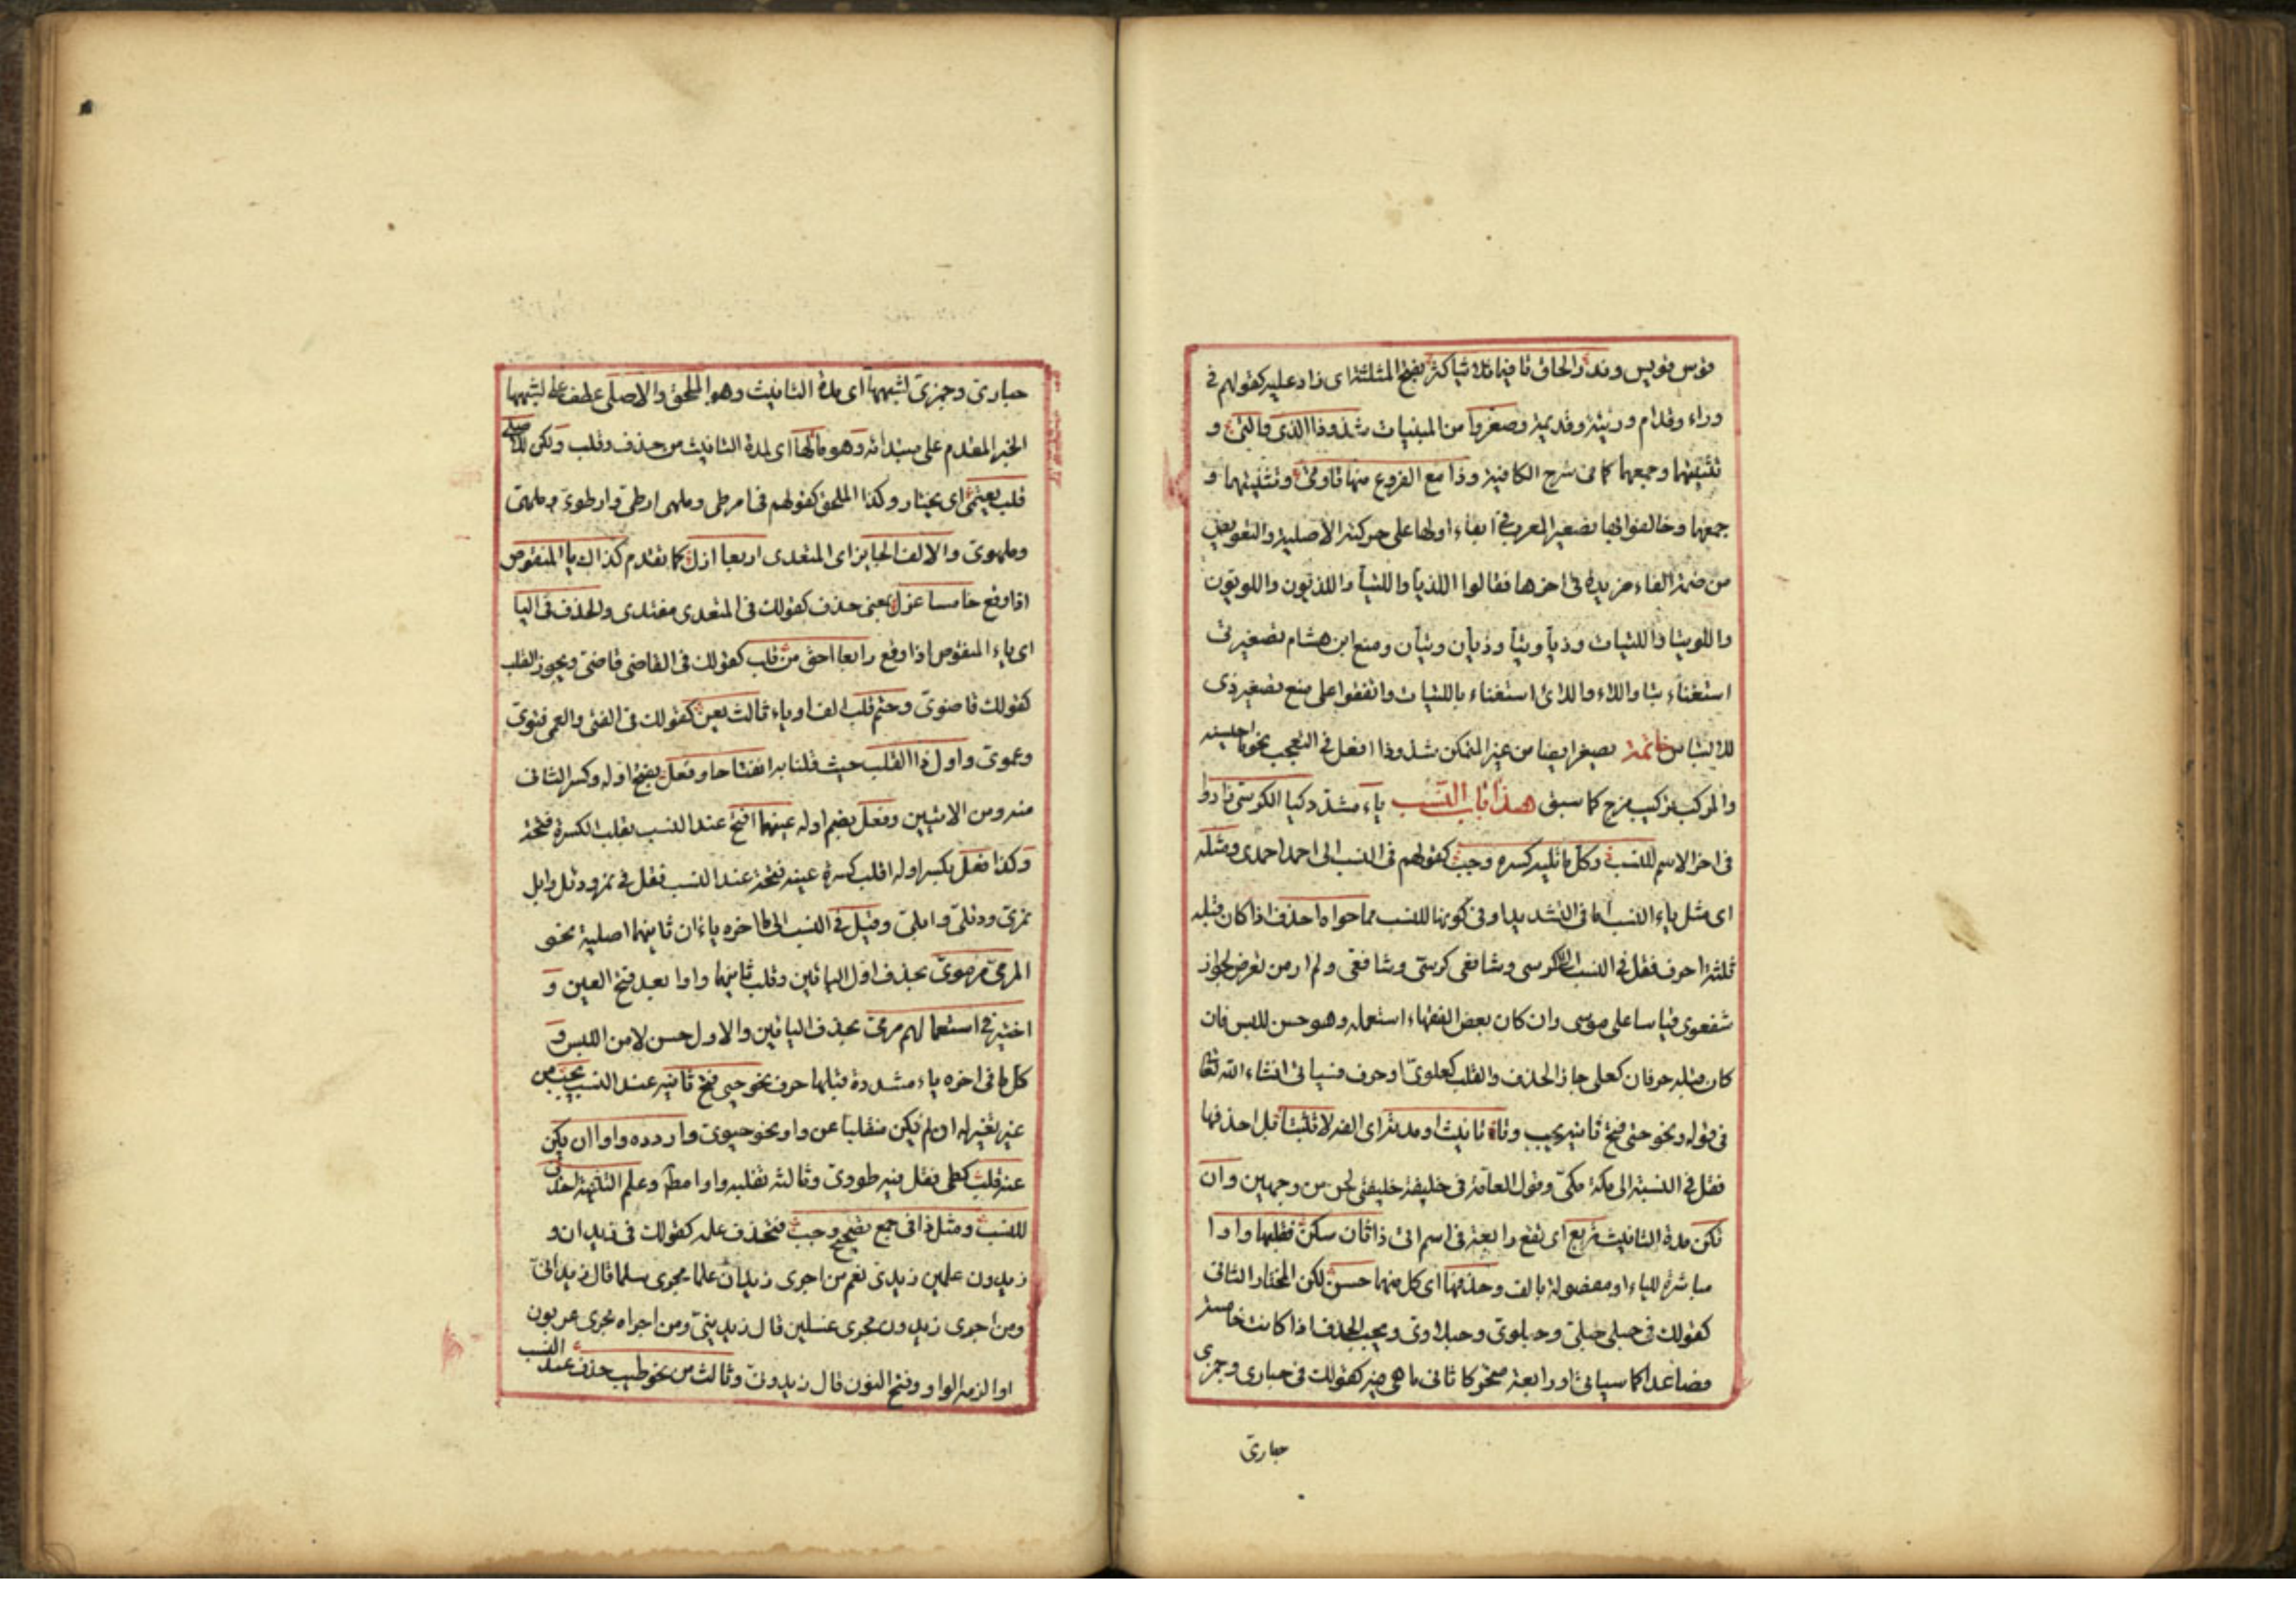 قوس قويس وندر الحاق تا فيما ثلاثيا كثر بفتح المثلثة اى زاد عليه كقولهم فى
وراء وقدام وريئة وقديمة وصغروا من المبنيات شذوذا الذى والتى و
تثنيتهما وجمعهما كما فى شرح الكافية وذا مع الفروع منها تا وتى وتثنيتهما و
جمعهما وخالفوا بها تصغير المعرب فى ابقاء اولها على حركته الاصلية والتعويض
من ضمه الفاء مزيدة فى اخرها فقالوا اللذيا واللتيا واللذيون واللويتون
واللويتا واللتيات وذيا وتيا وذيان وتيان ومنع ابن هشام تصغير تى
استغناء بتا واللاء واللائى استغناء باللتيات واتفقوا على منع تصغير ذى
للالتباس خاتمة يصغر ايضا من غير المتمكن شذوذا افعل فى التعجب نحو ما احيسنه
والمركب تركيب مزج كما سبق هذا باب النسب ياء مشددة كيا الكرسى زادوا
فى اخر الاسم للنسب وكل ما تليه كسره وجب كقولهم فى النسب الى احمد احمدى ومثله
اى مثل ياء النسب اما فى التشديد او فى كونها للنسب مما حواه احذف اذا كان قبله
ثلثة احرف فقل فى النسب الى كرسى وشافعى كرسى وشافعى ولم ار من تعرض لجواز
شفعوى قياسا على مرموى وان كان بعض الفقهاء استعمله وهو حسن للبس فان
كان قبله حرفان كعلى جاز الحذف والقلب كعلوى او حرف فسياتى انشاء الله تعالى
فى قوله ونحو حى فتح ثانيه يجب وتاء تانيث او مدته اى الفه لا تثبتا قبل احذفها
فقل فى النسبة الى مكة مكى وقول العامة فى خليفة خليفتى لحن من وجهين وان
تكن مدة التانيث تربع اى تقع رابعة فى اسم اى ذا ثان سكن فقلبها واوا
مباشرة للياء او مفصولة بالف وحذفها اى كل منهما حسن لكن المختار الثانى
كقولك فى حبلى حبلى وحبلوى وحبلاوى ويجب الحذف اذا كانت خامسة
فصاعدا كما سياتى او رابعة متحركا ثانى ما هى فيه كقولك فى حبارى وجمزى
حبارى
حبارى وجمزى لشبهها اى مدة التانيث وهو الملحق والاصلى عطف على لشبهها
الخبر المقدم على مبتدائه وهو مالها اى لمدة التانيث من حذف وقلب ولكن للاصلى
قلب يعتمى اى يختار وكذا الملحق كقولهم فى ارطى وملهى ارطى وارطوى وملهى
وملهوى والالف الجايز اى المتعدى اربعا ازل كما تقدم كذاك يا المنقوص
اذا وقع خامسا عزل يعنى حذف كقولك فى المعتدى معتدى والحذف فى اليا
اى ياء المنقوص اذا وقع رابعا احق من قلب كقولك فى القاضى قاضى ويجوز القلب
كقولك قاضوى وحتم قلب الف او ياء ثالث يعن كقولك فى الفتى والعمى فتوى
وعموى واول ذا القلب حيث قلنا به انفتاحا وفعل بفتح اوله وكسر الثانى
منه ومن الاتيين وفعل بضم اوله عينهما افتح عند النسب بقلب الكسرة فتحة
وكذا فعل بكسر اوله اقلب كسرة عينه فتحة عند النسب فقل فى نمر ودئل وابل
نمرى ودئلى وابلى وقيل فى النسب الى ما اخره ياءان ثانيهما اصلية نحو
المرمى مرموى بحذف اول اليائين وقلب ثانيهما واوا بعد فتح العين و
اختير فى استعمالهم مرمى بحذف اليائين والاول حسن لامن اللبس و
كل ما فى اخره ياء مشددة قبلها حرف نحو حى فتح ثانيه عند النسب يجب من
غير تغيير له ان لم يكن منقلبا عن واو نحو حيوى واردده واوا ان يكن
عنه قلب كطى فقل فيه طووى وثالثه تقلبه واوا مطلقا وعلم التثنية احذف
للنسب ومثل ذا فى جمع تصحيح وجب فتحذف علمه كقولك فى زيدان و
زيدون علمين زيدى نعم من اجرى زيدان علما مجرى سلمان قال زيدانى
ومن اجرى زيدون مجرى غسلين قال زيدينى ومن اجراه مجرى عربون
او الزمه الواو وفتح النون قال زيدونى وثالث من نحو طيب حذف عند النسب